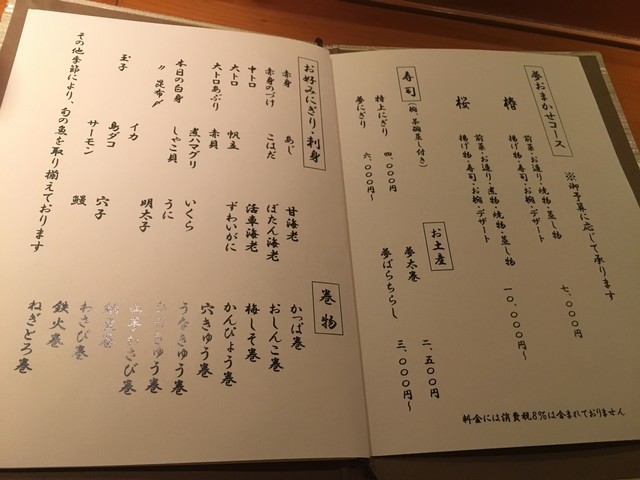 夢おまかせコース
※御予算に応じて承ります
椿
前菜・お造り・焼物・蒸し物
揚げ物・寿司・お椀・デザート
七、〇〇〇円
桜
前菜・お造り・煮物・焼物・蒸し物
揚げ物・寿司・お椀・デザート
一〇、〇〇〇円～
寿司(椀、茶碗蒸し付き)
特上にぎり 四、〇〇〇円
夢にぎり 六、〇〇〇円～
お土産
夢太巻 二、五〇〇円
夢ばらちらし 三、〇〇〇円～
料金には消費税8%は含まれておりません
お好みにぎり・刺身
赤身 あじ 甘海老
赤身のづけ こはだ ぼたん海老
中トロ 活車海老
大トロ 帆立 ずわいがに
大トロあぶり 赤貝
煮ハマグリ いくら
本日の白身 しゃこ貝 うに
〃 昆布〆
イカ 明太子
玉子 島ダコ
サーモン 穴子
鰻
その他季節により、旬の魚を取り揃えております
巻物
かっぱ巻
おしんこ巻
梅しそ巻
かんぴょう巻
穴きゅう巻
うなきゅう巻
きゅう巻
さび巻
わさび巻
鉄火巻
ねぎとろ巻